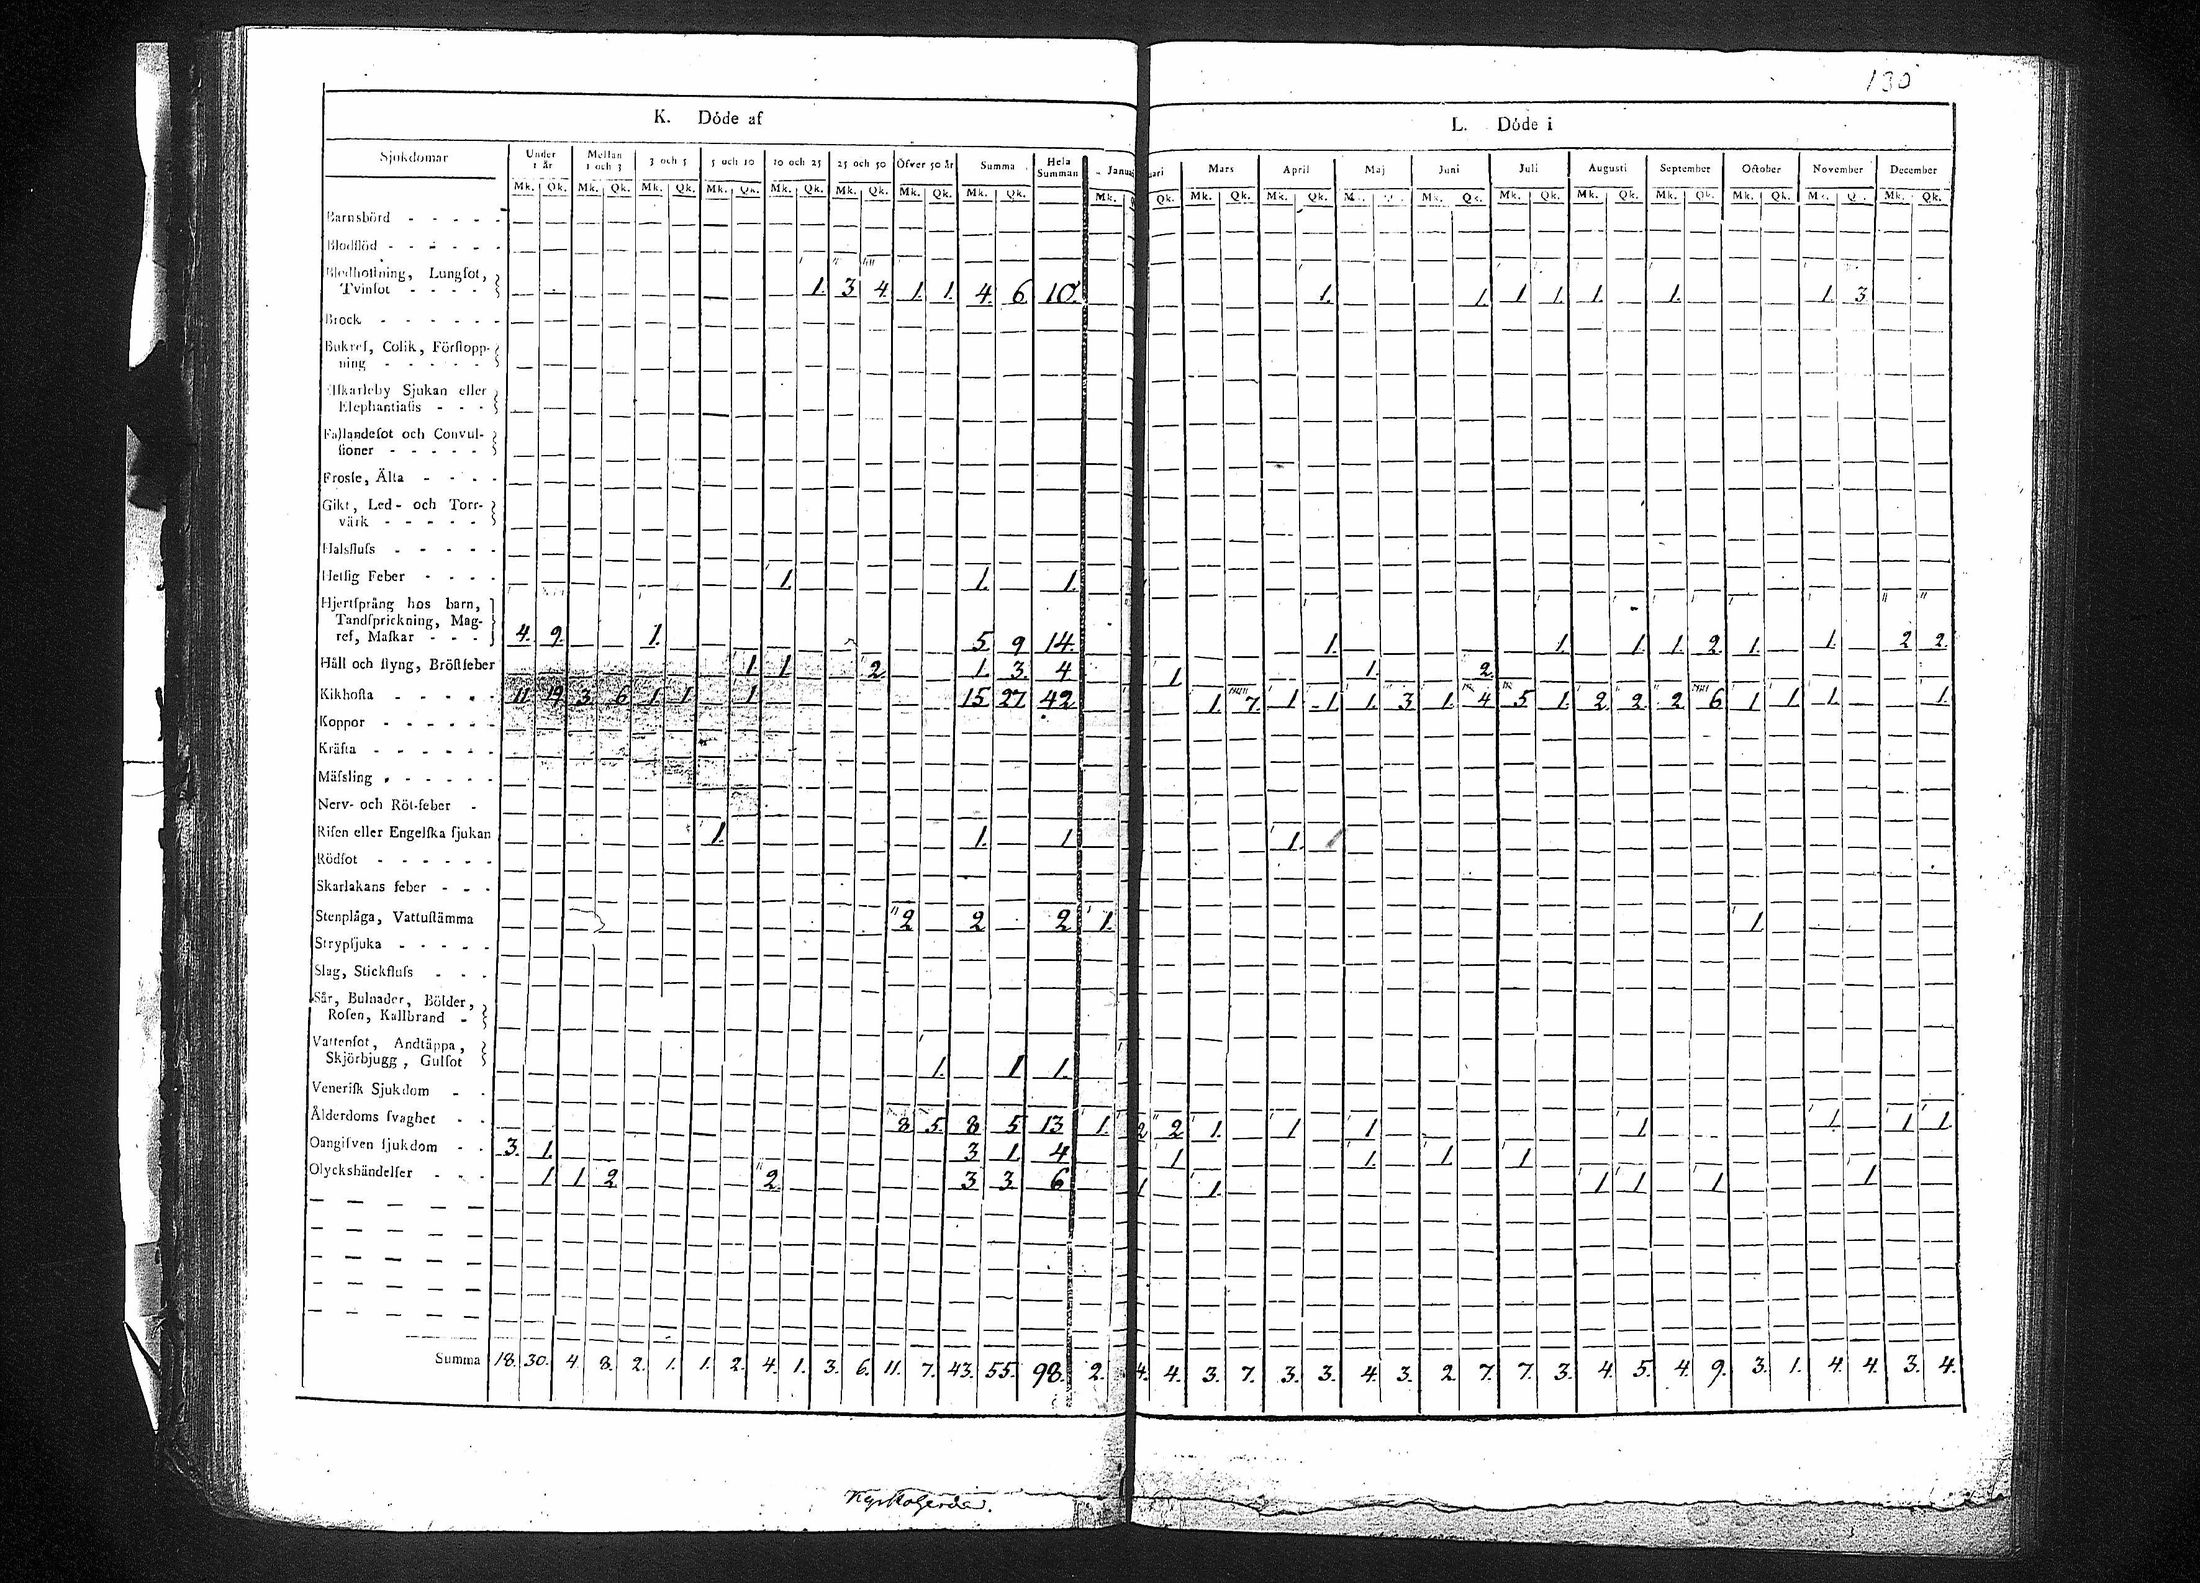 130
K. Döde af
L. Döde i
Sjukdomar Under 1 år Mellan 1 och 3 3 och 5 5 och 10 10 och 25 25 och 50 Öfver 50 år Summa Hela Summan Janua ari Mars April Maj Juni Juli Augusti September October November December
Mk. Qk. Mk. Qk. Mk. Qk. Mk. Qk. Mk. Qk. Mk. Qk. Mk. Qk. Mk. Qk. Mk. Qk. Mk. Qk. Mk. Qk. Mk. Qk. Mk. Qk. Mk. Qk. Mk. Qk. Mk. Qk. Mk. Qk. Mk. Qk.
Barnsbörd - - - - -
Blodflöd - - - - - -
Blodhostning, Lungsot,
Tvinsot - - - - 1. 3 4 1. 1. 4. 6. 10. 1. 1. 1 1. 1. 1. 1. 3
Brock - - - - - -
Bukref, Colik, Förstopp-
ning - - - - -
Elfkarleby Sjukan eller
Elephantiasis - - -
Fallandesot och Convul-
sioner - - - - -
Frossa, Älta - - - -
Gikt, Led- och Torr-
värk - - - - -
Halsfluss - - - - -
Hetsig Feber - - - - 1. 1. 1.
Hjertsprång hos barn,
Tandsprickning, Mag-
ref, Maskar - - - 4. 9. 1. 5 9 14. 1. 1. 1. 1. 2. 1. 1. 2 2.
Håll och styng, Bröstfeber 1. 1. 2 1. 3. 4 1. 1. 2.
Kikhosta - - - - - 11 19. 3. 6 1. 1. 1. 15 27. 42. 1. 7. 1 1 1. 3 1. 4 5 1. 2 2. 2 6 1 1. 1. 1.
Koppor - - - - - -
Kräfta - - - - - -
Mässling - - - - -
Nerv- och Röt-feber -
Risen eller Engelska sjukan 1. 1. 1 1.
Rödsot - - - - - -
Skarlakans feber - - -
Stenplåga, Vattustämma 2 2 2 1. 1.
Strypsjuka - - - - -
Slag, Stickfluss - - -
Sår, Bulnader, Bölder,
Rosen, Kallbrand -
Vattensot, Andtäppa,
Skjörbjugg, Gulsot 1. 1 1.
Venerisk Sjukdom - -
Ålderdoms svaghet - - 8 5. 8 5 13 1. 2 2 1. 1 1 1 1. 1 1.
Oangifven sjukdom - - 3. 1. 3 1. 4 1 1. 1 1
Olyckshändelser - - - 1 1 2 2. 3 3. 6 1 1. 1 1 1 1
Summa 18. 30. 4. 8. 2. 1. 1. 2. 4. 1. 3. 6. 11. 7. 43. 55. 98. 2. 4. 4. 3. 7. 3. 3. 4. 3. 2. 7. 7. 3. 4. 5. 4. 9. 3. 1. 4. 4. 3. 4.